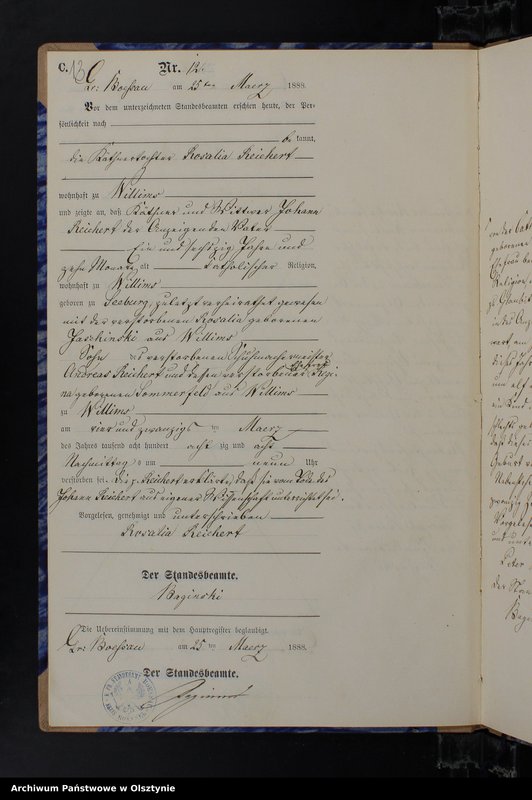 C. 13
Nr. 12.
Gr: Boessau am 25ten Maerz 1888.
Vor dem unterzeichneten Standesbeamten erschien heute, der Per-
sönlichkeit nach
be kannt,
die Käthnertochter Rosalia Reichert
wohnhaft zu Willims
und zeigte an, daß Käthner und Wittwer Johann
Reichert der Anzeigenden Vater
Ein und sechszig Jahre und
zehn Monate alt katholischer Religion,
wohnhaft zu Willims
geboren zu Seeburg, zuletzt verheirathet gewesen
mit der verstorbenen Rosalia geborenen
Jaschinski aus Willims
Sohn des verstorbenen Schuhmachermeister
Andreas Reichert und dessen verstorbener Ehefrau Regi
na geborenen Sommerfeld aus Willims
zu Willims
am vier und zwanzigsten Maerz
des Jahres tausend acht hundert acht zig und acht
Nachmittags um neun Uhr
verstorben sei. Die p. Reichert erklärte, daß sie vom Tode des
Johann Reichert aus eigener Wissenschaft unterrichtet sei.
Vorgelesen, genehmigt und unterschrieben
Rosalia Reichert
Der Standesbeamte.
Baginski
Die Uebereinstimmung mit dem Hauptregister beglaubigt.
Gr: Boessau am 25ten Maerz 1888.
Der Standesbeamte.
Baginski
Archiwum Państwowe w Olsztynie